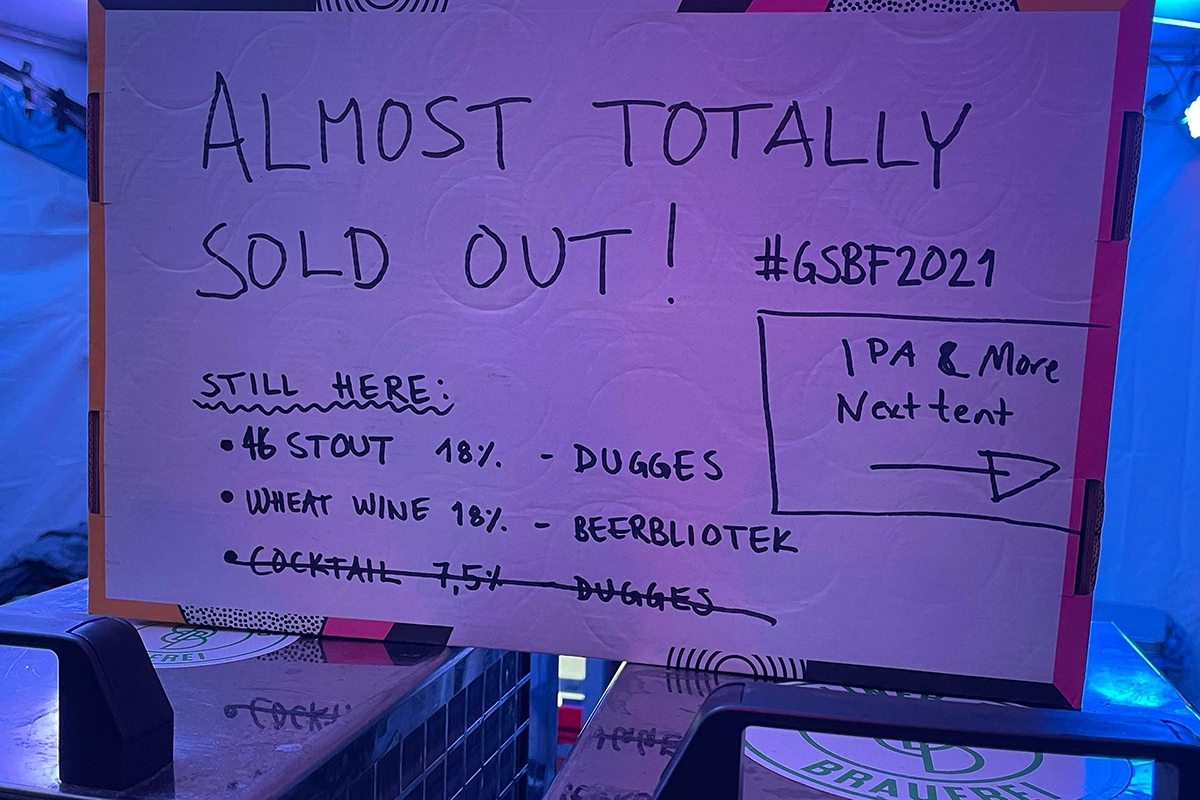 ALMOST TOTALLY
SOLD OUT!
#GSBF2021
IPA & More
Next tent
STILL HERE:
• 46 STOUT 18% - DUGGES
• WHEAT WINE 18% - BEERBLIOTEK
• COCKTAIL 7,5% - DUGGES
EREI
BRAUEREI